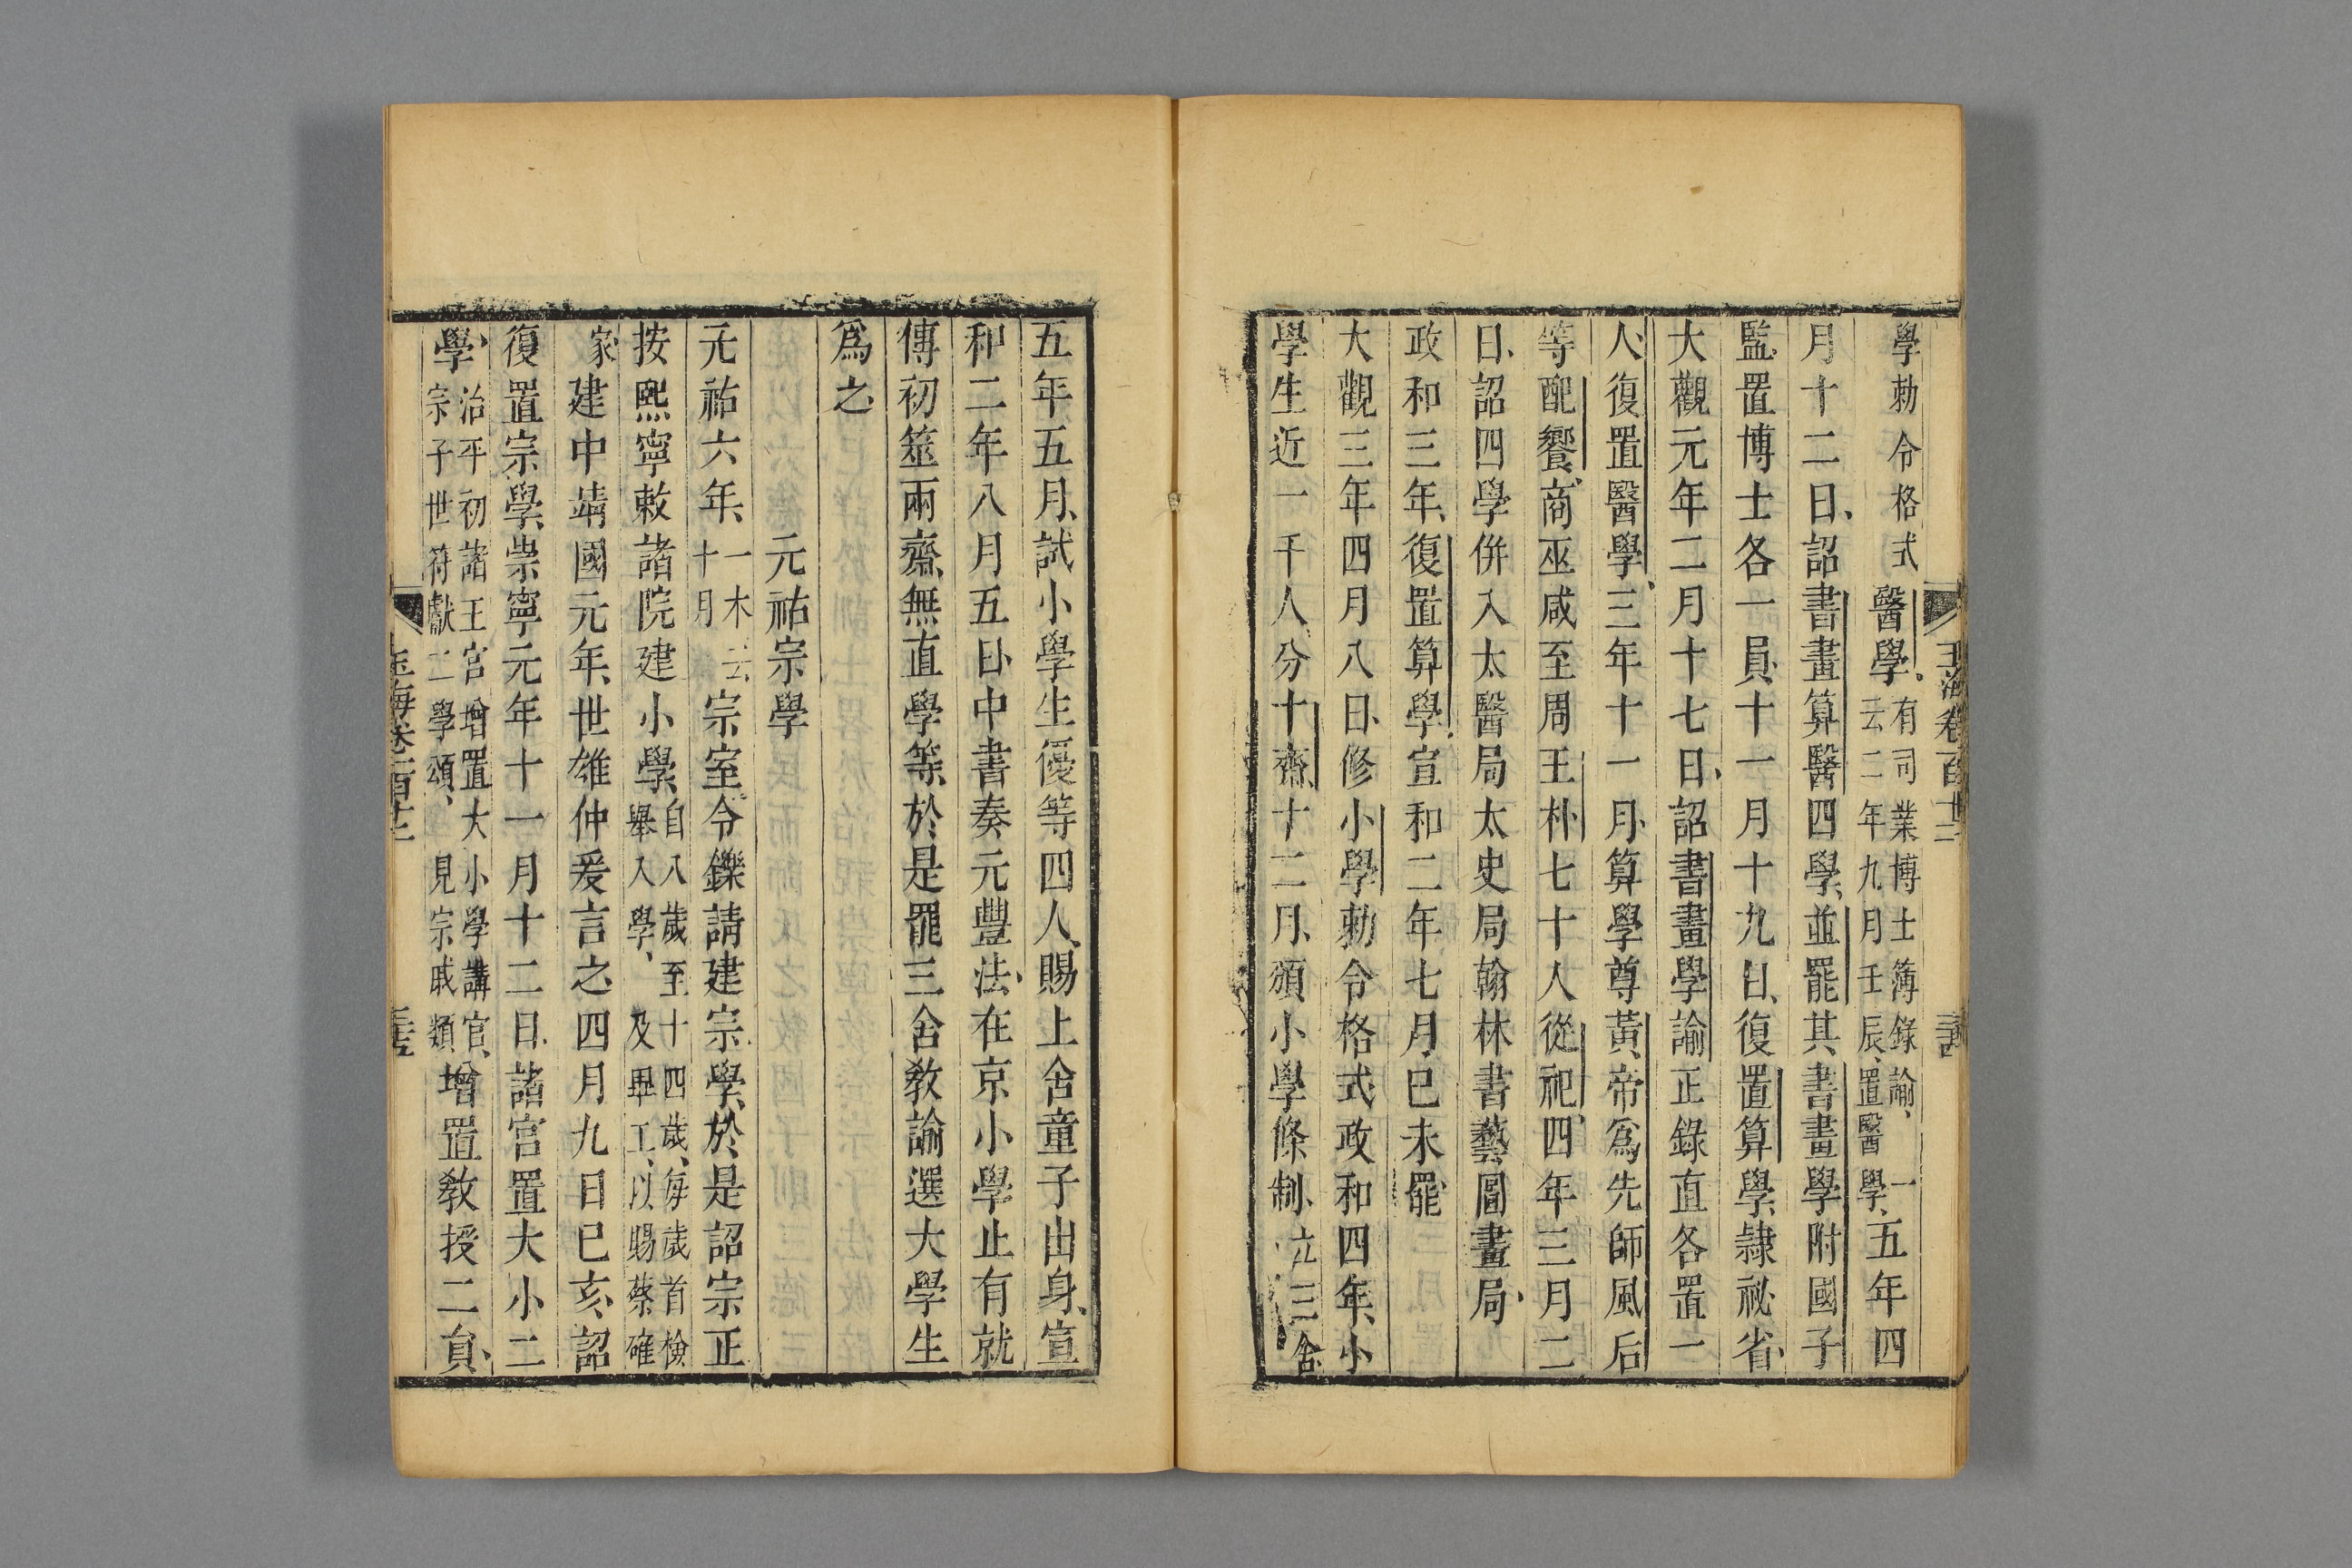 學勑令格式醫學有司業博士簿錄諭一云二年九月壬辰置醫學五年四
月十二日詔書畫算醫四學並罷其書畫學附國子
監置博士各一員十一月十九日復置算學隷祕省
大觀元年二月十七日詔書畫學諭正錄直各置一
人復置醫學三年十一月算學尊黃帝爲先師風后
等配饗商巫咸至周王朴七十人從祀四年三月二
日詔四學併入太醫局太史局翰林書藝圖畫局
政和三年復置算學宣和二年七月己未罷
大觀三年四月八日修小學勑令格式政和四年小
學生近一千人分十齋十二月頒小學條制立三舍
五年五月試小學生優等四人賜上舍童子出身宣
和二年八月五日中書奏元豐法在京小學止有就
傳初筮兩齋無直學等於是罷三舍敎諭選大學生
爲之
元祐宗學
元祐六年一木云十月宗室令鑠請建宗學於是詔宗正
按熙寧敕諸院建小學自八歲至十四歲每歲首檢舉入學及畢工以賜蔡確
家建中靖國元年世雄仲爰言之四月九日已亥詔
復置宗學崇寧元年十一月十二日諸宮置大小二
學治平初諸王宮增置大小學講官宗子世符獻二學頌見宗戚類增置敎授二員
玉海卷一百十二